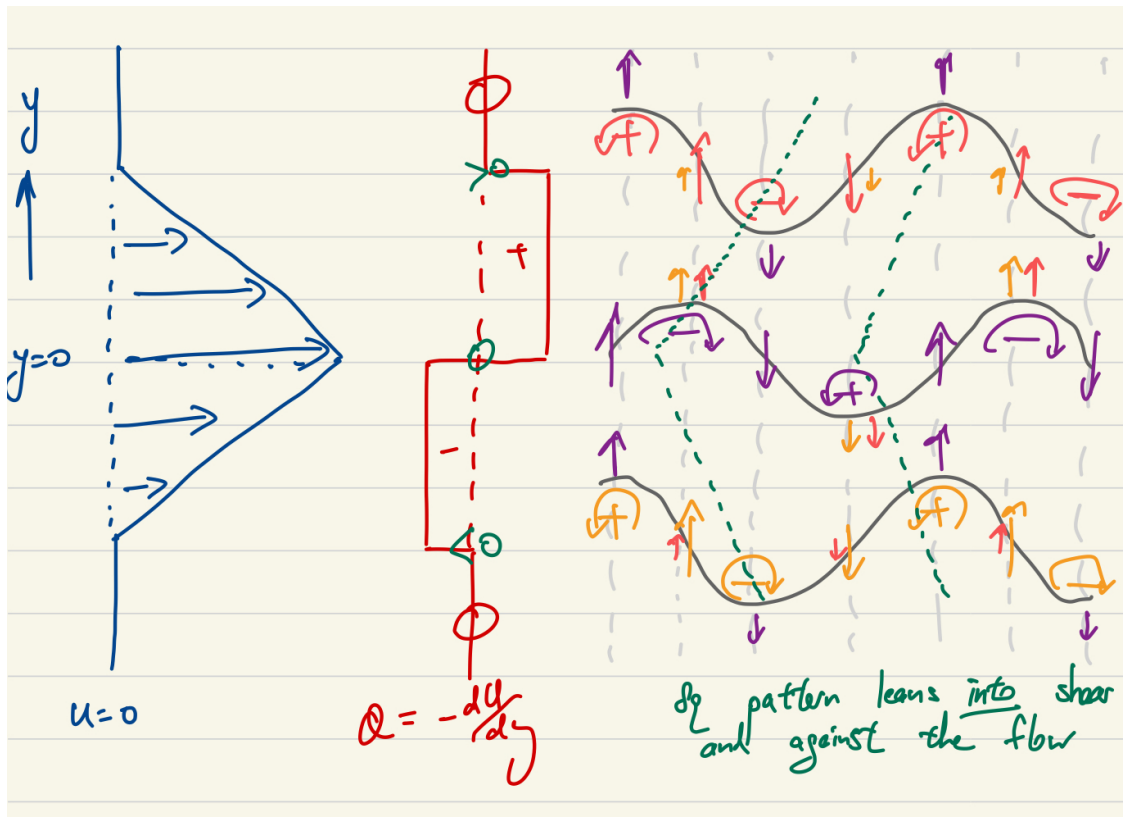 y
0
+
y=0
0
-
0
0
u=0
Q = - dU/dy
+
-
+
-
-
+
-
+
-
+
-
δq pattern leans into shear
and against the flow